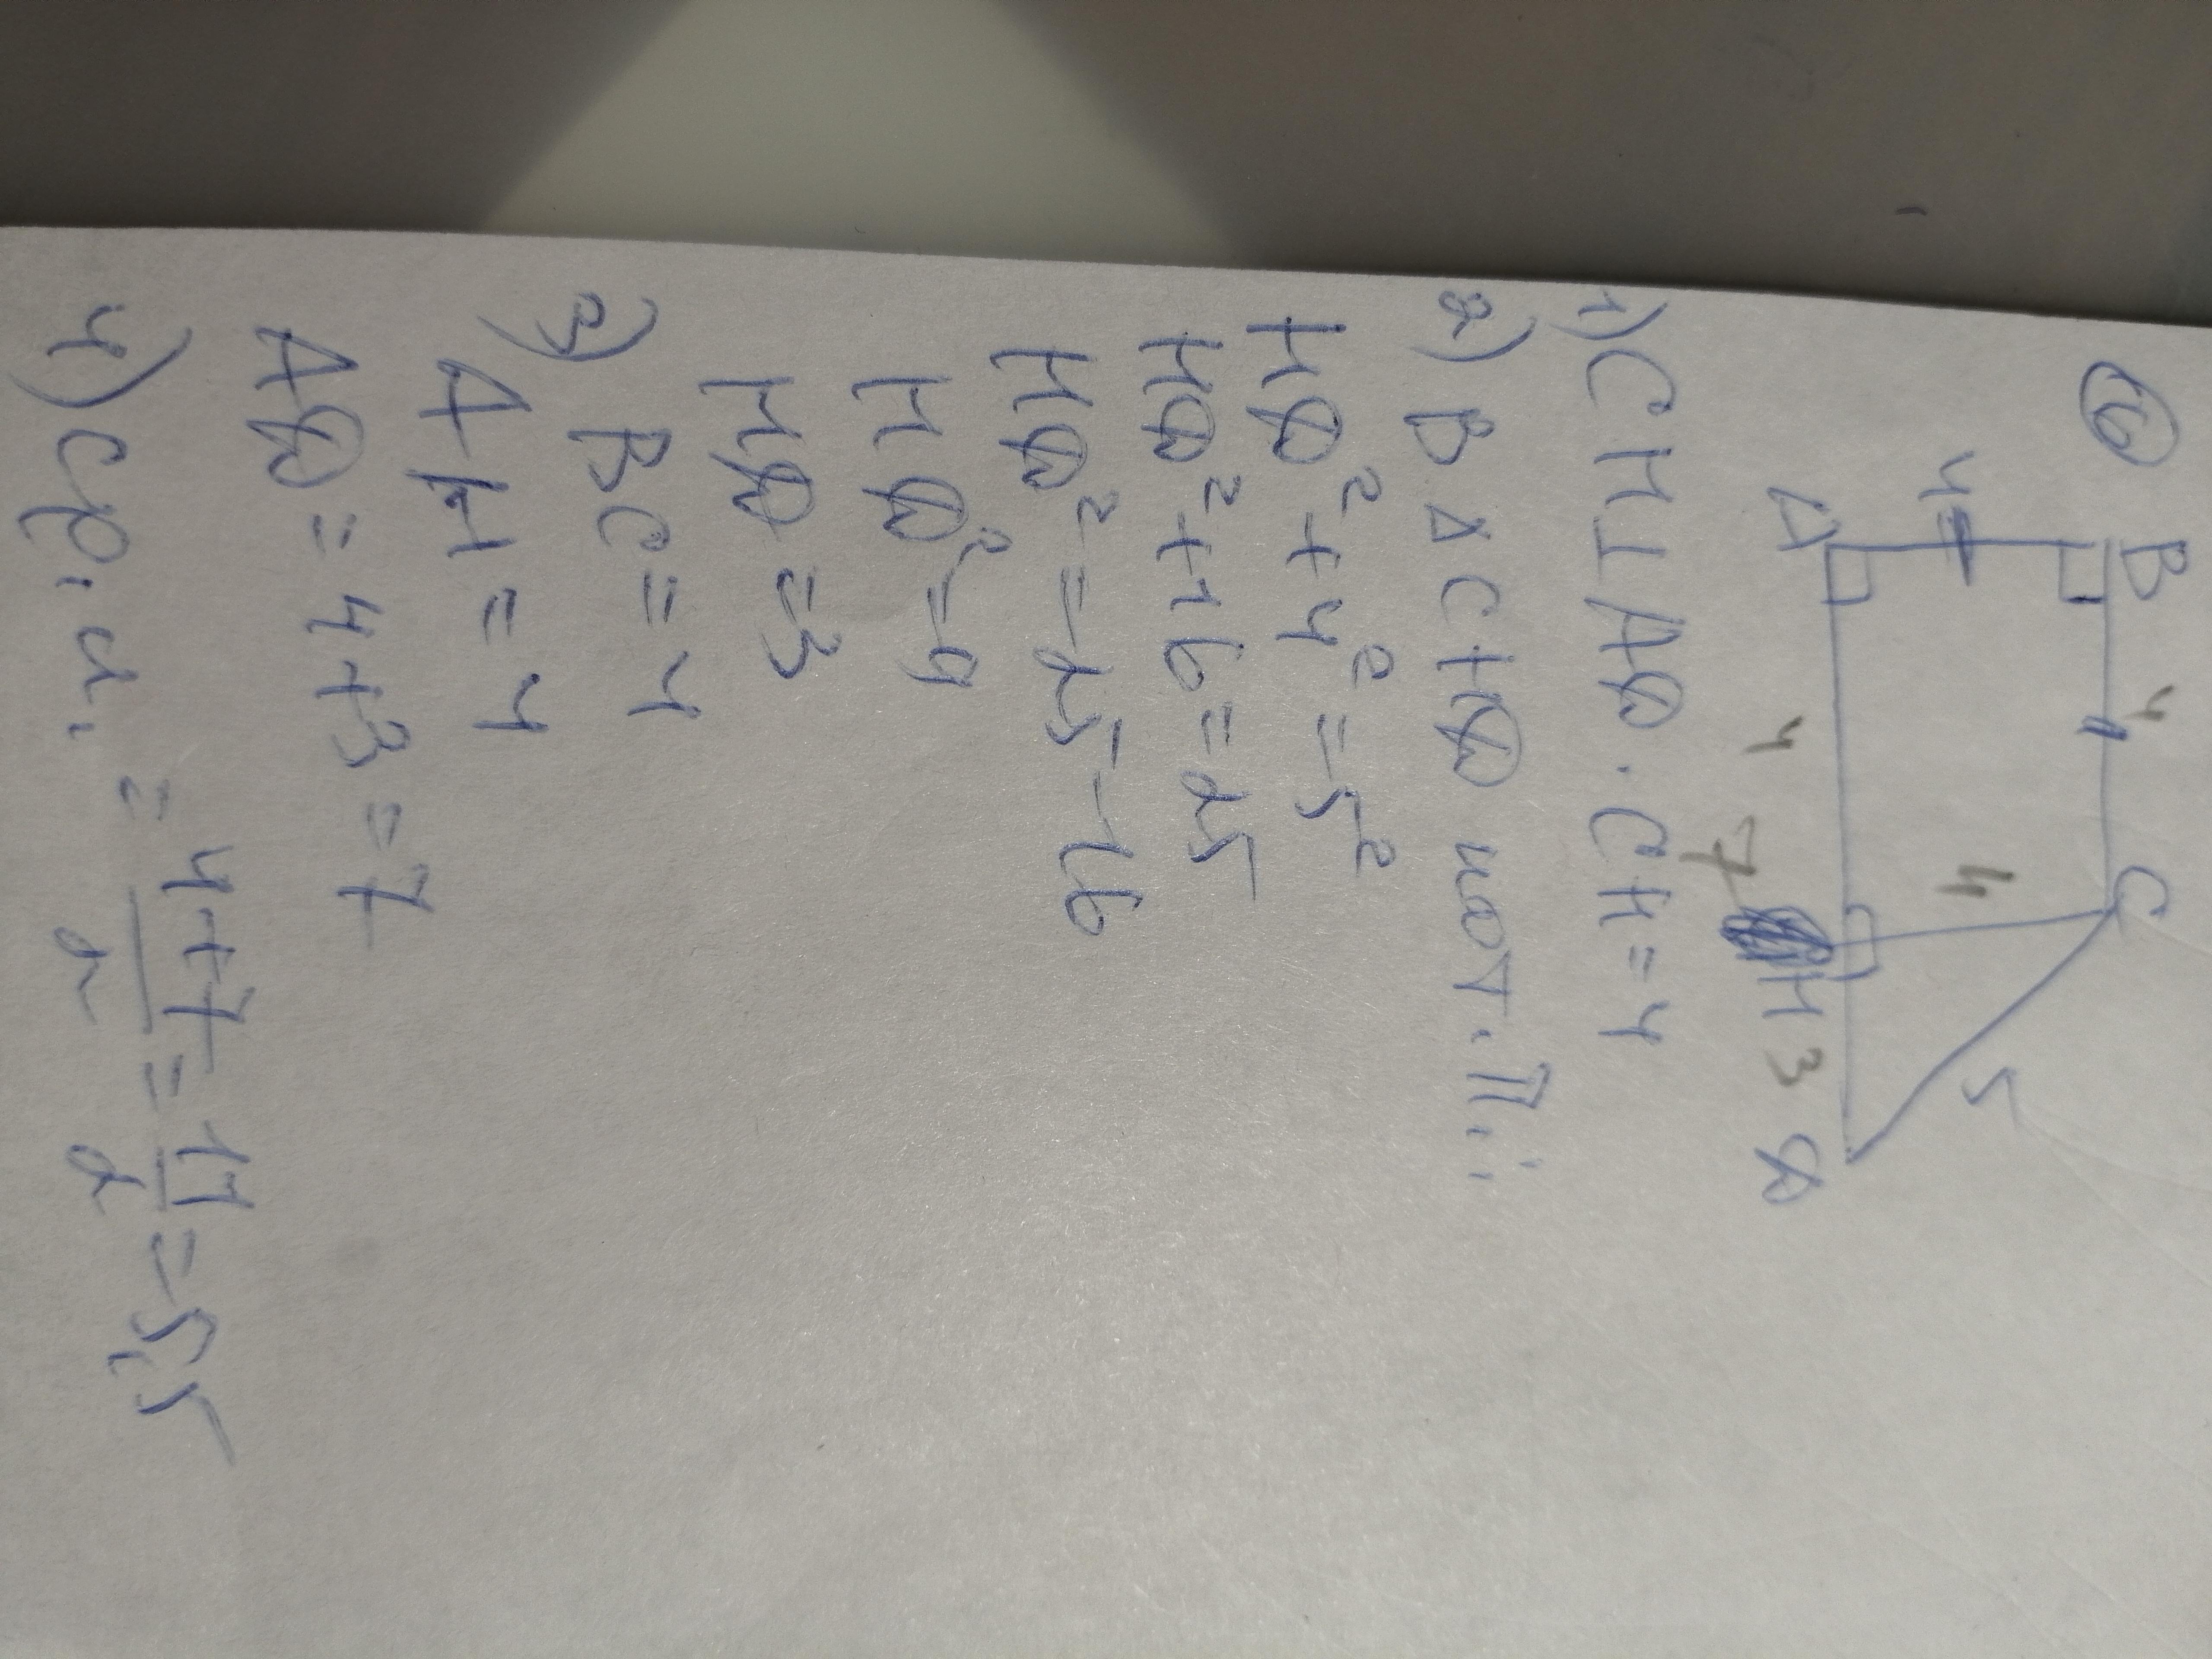 6
B 4 C
4 4 5
A 4 H 3 D
7
1) CH⊥AD. CH=4
2) В ΔCHD по т. П.:
HD²+4²=5²
HD²+16=25
HD²=25-16
HD²=9
HD=3
3) BC=4
AH=4
AD=4+3=7
4) ср. л. = 4+7/2 = 11/2 = 5,5